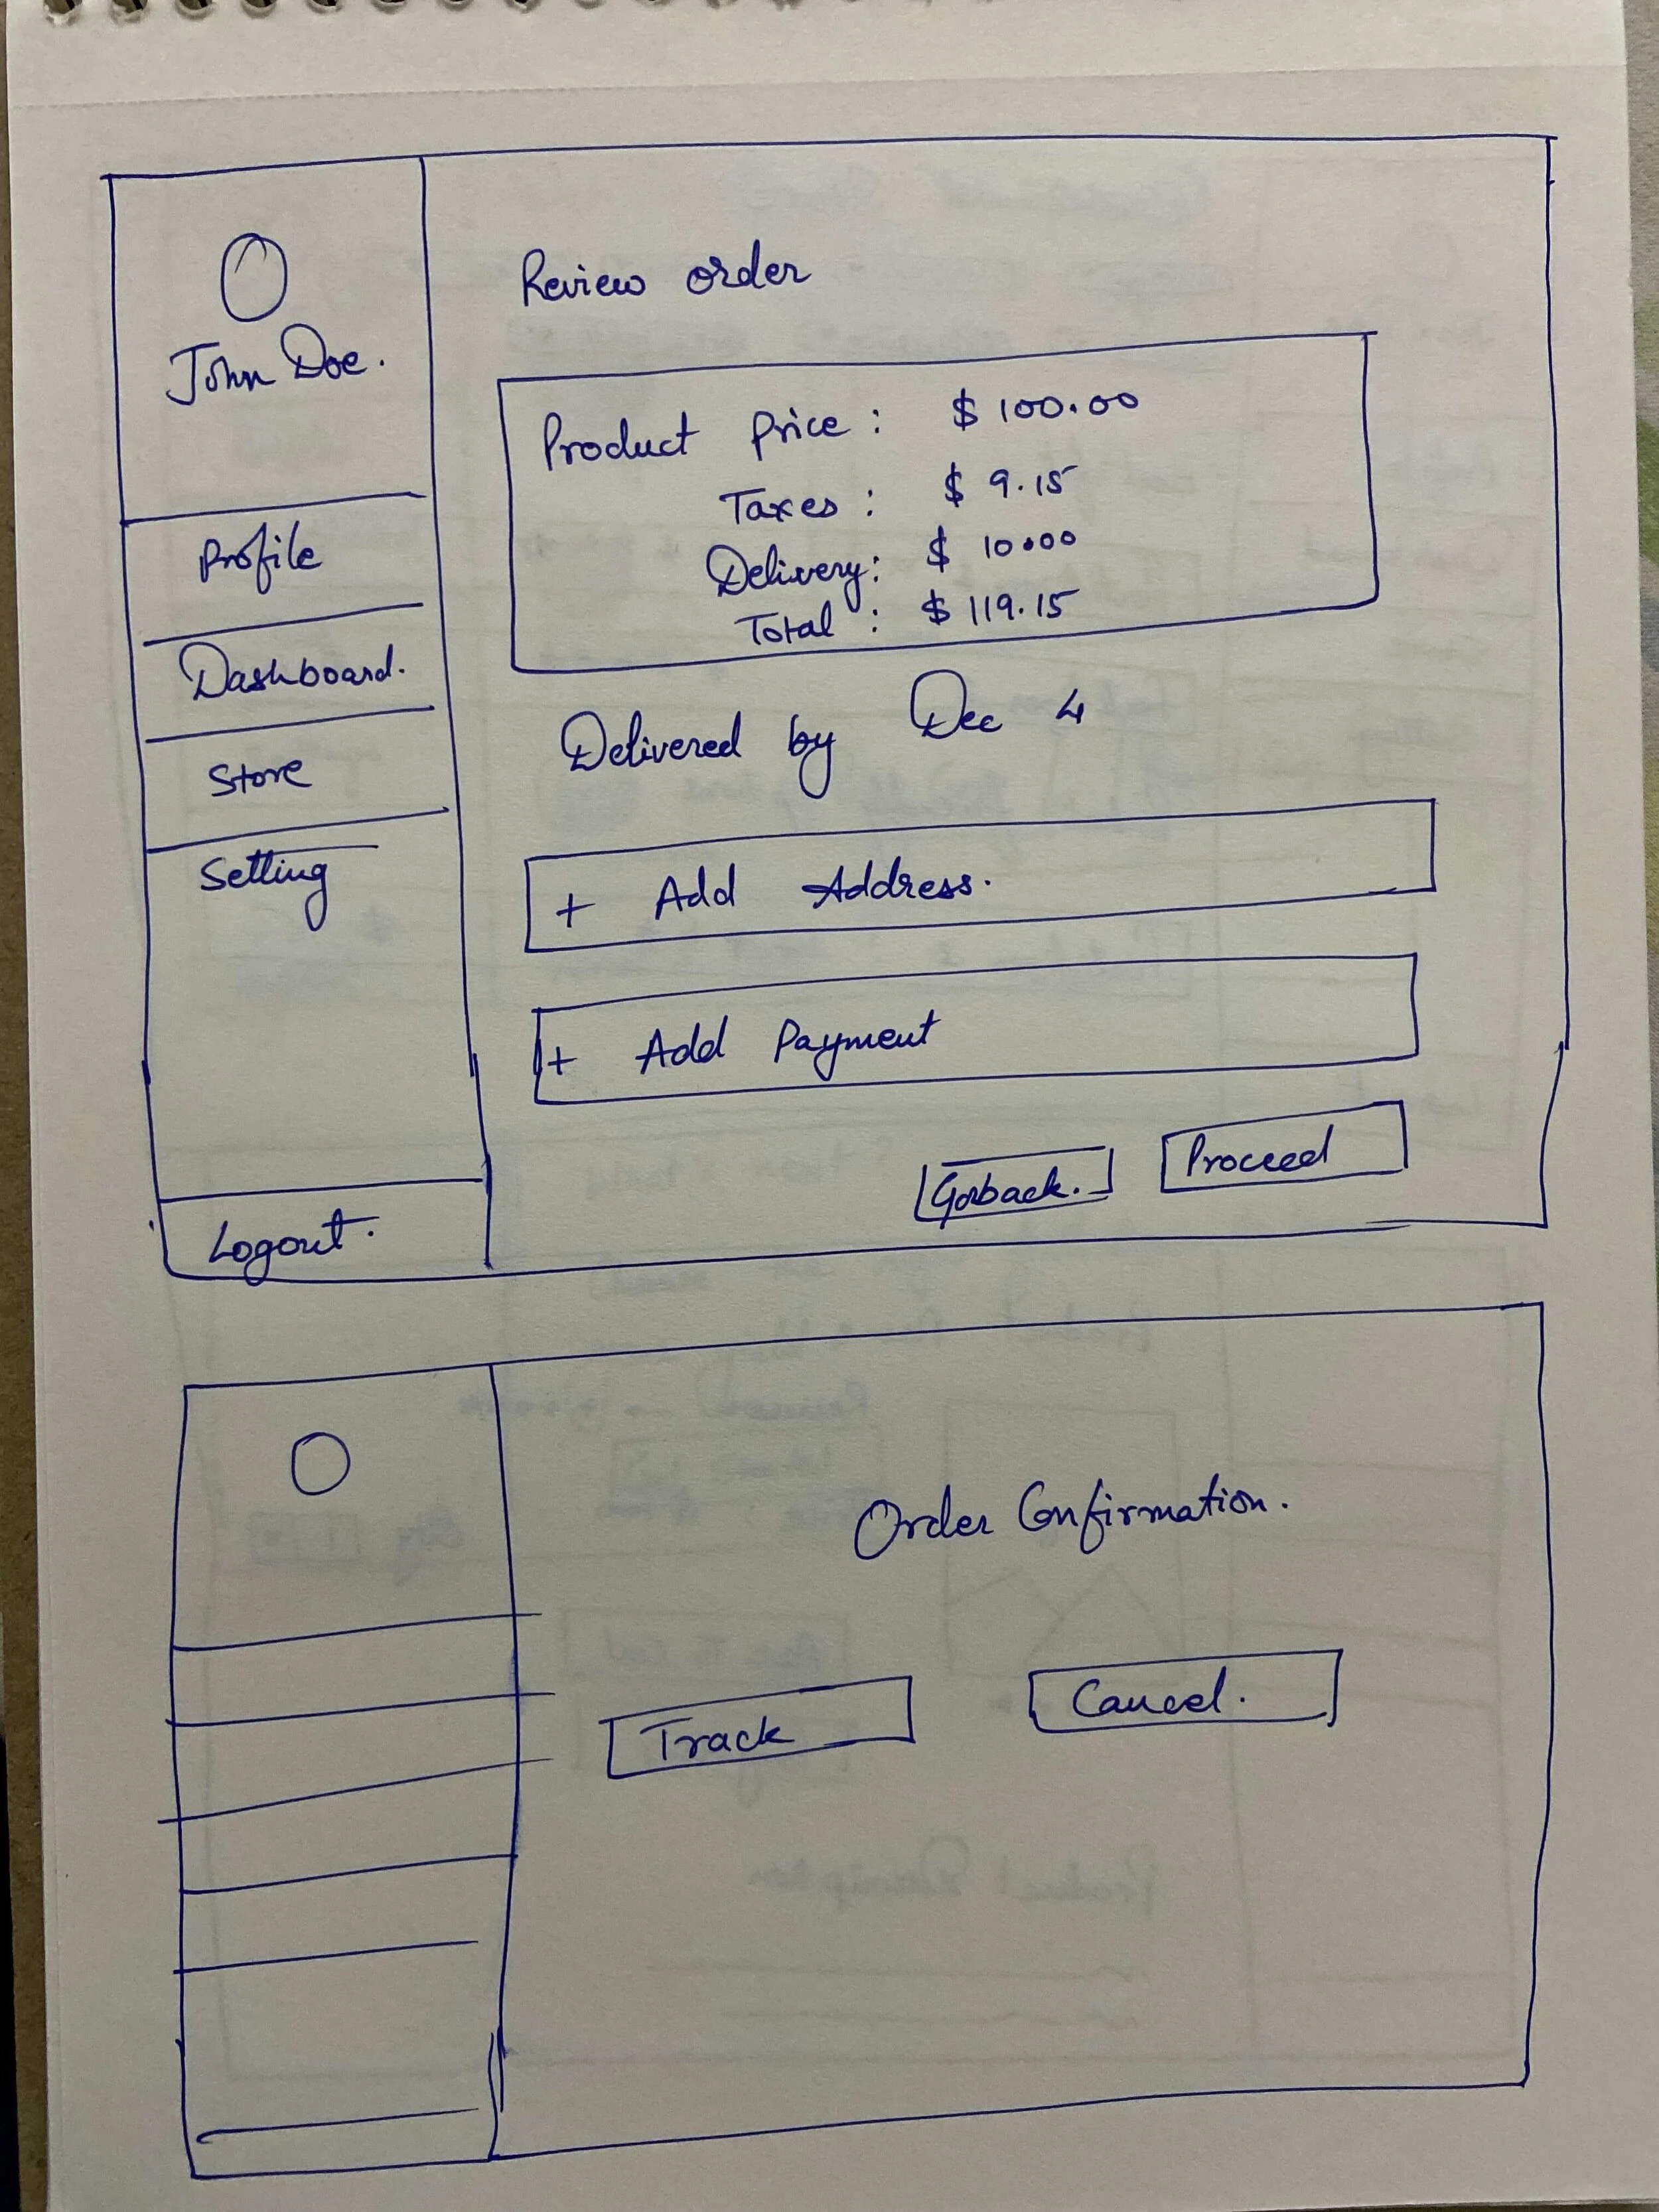 John Doe.
Profile
Dashboard.
Store
Setting
Logout.
Review order
Product Price : $ 100.00
Taxes : $ 9.15
Delivery : $ 10.00
Total : $ 119.15
Delivered by Dec 4
+ Add Address.
+ Add Payment
Goback.
Proceed
Order Confirmation.
Track
Cancel.